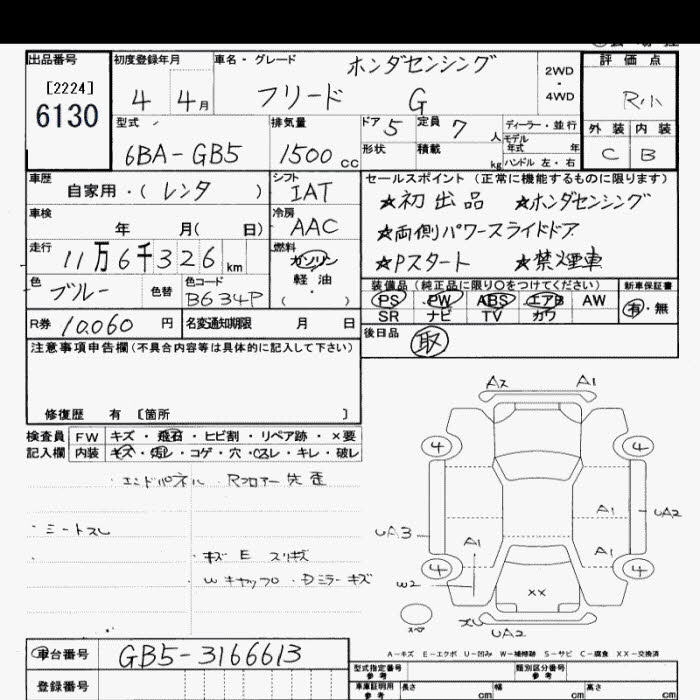 出品番号
[2224]
6130
初度登録年月
4 4月
車名・グレード
ホンダセンシング
フリード G
2WD
・
4WD
評価点
R小
外装 内装
C B
型式
6BA-GB5
排気量
1500cc
ドア 5
定員 7人
形状
積載 kg
ディーラー・並行
モデル年式 年
ハンドル 左・右
車歴
自家用・(レンタ )
シフト
IAT
車検
年 月( 日)
冷房
AAC
走行
11万6千326km
燃料
ガソリン
軽油
( )
色
ブルー
色替
色コード
B634P
R券 10,060円
名変通知期限 月 日
セールスポイント (正常に機能するものに限ります)
★初出品 ★ホンダセンシング
★両側パワースライドドア
★Pスタート ★禁煙車
装備品(純正品に限り○をつけてください)
新車保証書
PS PW ABS エアB AW
有・無
SR ナビ TV カワ
後日品 取
注意事項申告欄(不具合内容等は具体的に記入して下さい)
修復歴 有 [箇所 ]
検査員 FW キズ・飛石・ヒビ割・リペア跡・×要
記入欄 内装 キズ・汚レ・コゲ・穴・コスレ・キレ・破レ
・エンドパネル ・Rフロアー 先歪
・シートスレ
・キズ E スリキズ
・Wキャップ ・Dミラーキズ
A2 A1
4 4
A1 UA2
UA3
A1 A1
4 4
W2
XX
スペア
UA2
A-キズ E-エクボ U-凹み W-補修跡 S-サビ C-腐食 XX-交換済
車台番号 GB5-3166613
登録番号
型式指定番号 参考
類別区分番号 参考
車庫証明用 参考
長さ cm 幅 cm 高さ cm